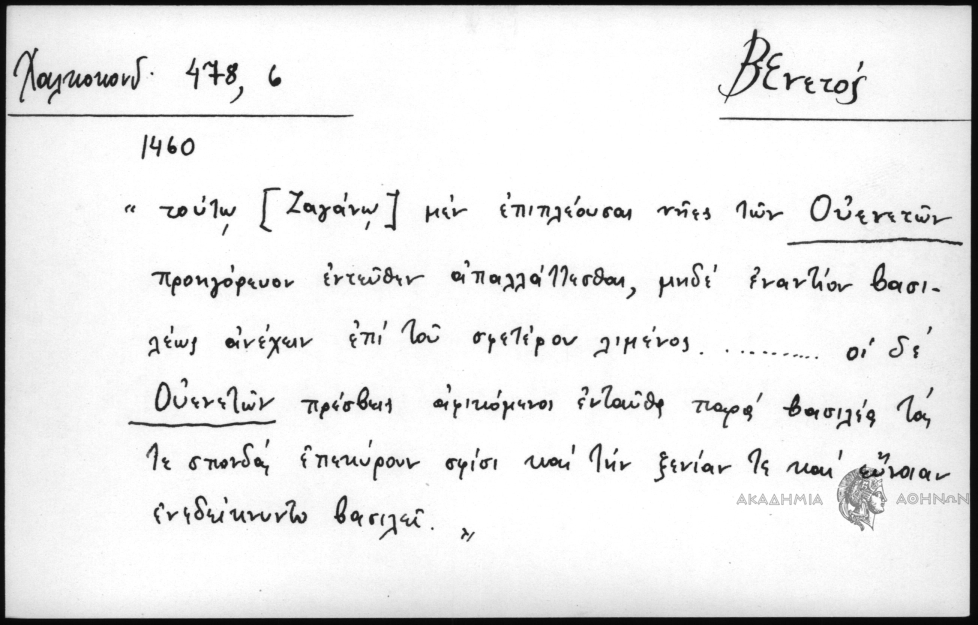 Χαλκοκονδ. 478, 6
Βενετός
1460
“ τούτῳ [Ζαγάνῳ] μέν ἐπιπλέουσαι νῆες τῶν Οὐενετῶν
προηγόρευον ἐντεῦθεν ἀπαλλάττεσθαι, μηδέ ἐναντίον βασι-
λέως ἀνέχειν ἐπί τοῦ σφετέρου λιμένος. .......... οἱ δέ
Οὐενετῶν πρέσβεις ἀφικόμενοι ἐνταῦθα παρά βασιλέα τάς
τε σπονδάς ἐπεκύρουν σφίσι καί τήν ξενίαν τε καί εὔνοιαν
ἐνεδείκνυντο βασιλεῖ. „
ΑΚΑΔΗΜΙΑ ΑΘΗΝΩΝ